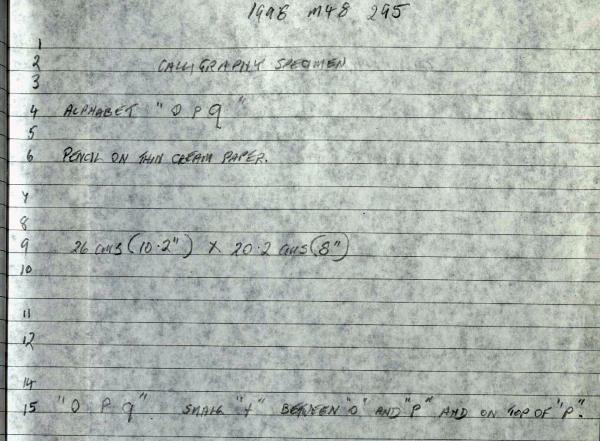 1998 M48 295
1
2 CALLIGRAPHY SPECIMEN
3
4 ALPHABET "O P q"
5
6 PENCIL ON THIN CREAM PAPER.
7
8
9 26 cms (10.2") X 20.2 cms (8")
10
11
12
14
15 "O P q". SMALL "+" BETWEEN "O" AND "P" AND ON TOP OF "P".